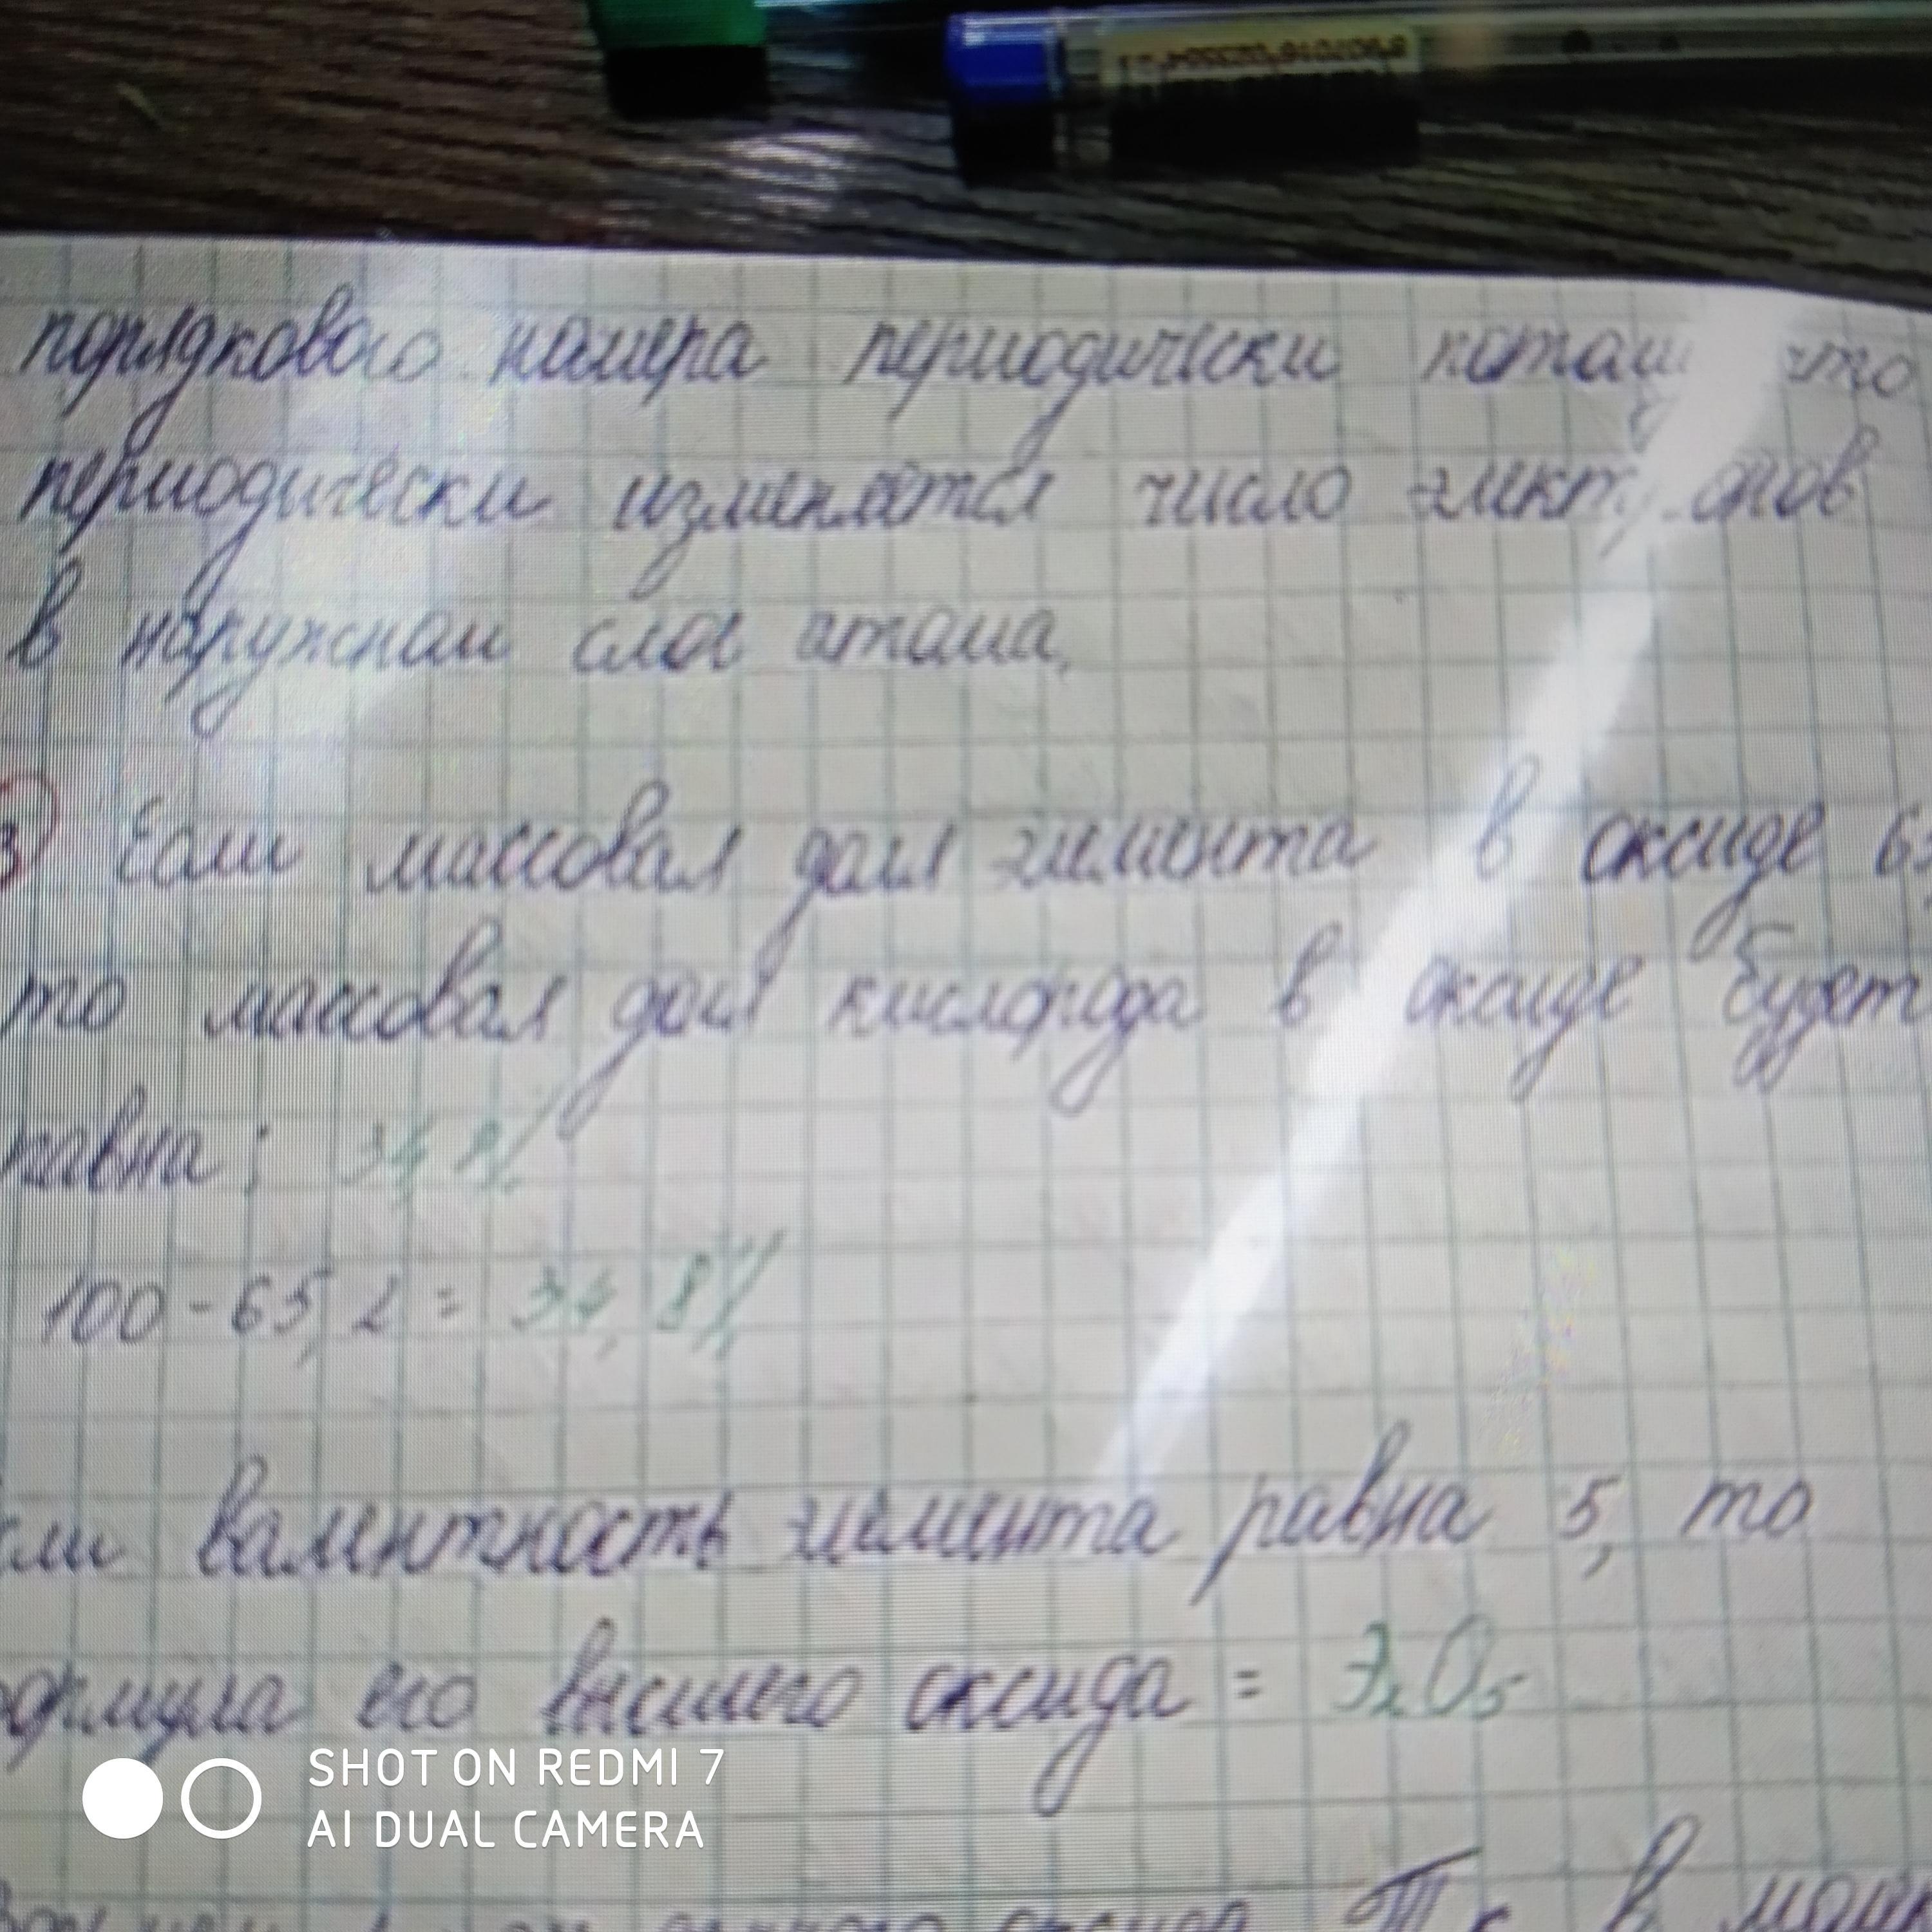 порядкового номера периодически потому что
периодически изменяется число электронов
в наружном слое атома.
3 Если массовая доля элемента в оксиде 65
то массовая доля кислорода в оксиде будет
равна:
100-65,2= 34,8%
если валентность элемента равна 5, то
формула его высшего оксида = Э2О5
Т.к. в
SHOT ON REDMI 7
AI DUAL CAMERA